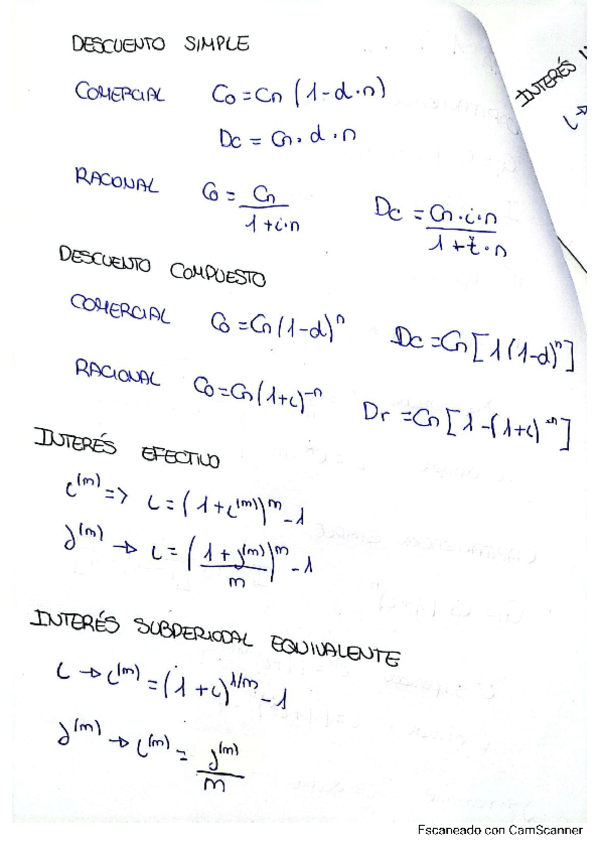 DESCUENTO SIMPLE
INTERÉS
COMERCIAL Co = Cn (1-d·n)
Dc = Cn·d·n
RACONAL Co = Cn / 1+i·n Dc = Cn·i·n / 1+i·n
DESCUENTO COMPUESTO
COMERCIAL Co = Cn (1-d)^n Dc = Cn [1(1-d)^n]
RACIONAL Co = Cn (1+i)^-n Dr = Cn [1-(1+i)^-n]
INTERÉS EFECTIVO
i^(m) => i = (1+i^(m))^m -1
J^(m) → i = (1+J^(m) / m)^m -1
INTERÉS SUBPERIODAL EQUIVALENTE
i → i^(m) = (1+i)^1/m -1
J^(m) → i^(m) = J^(m) / m
Escaneado con CamScanner